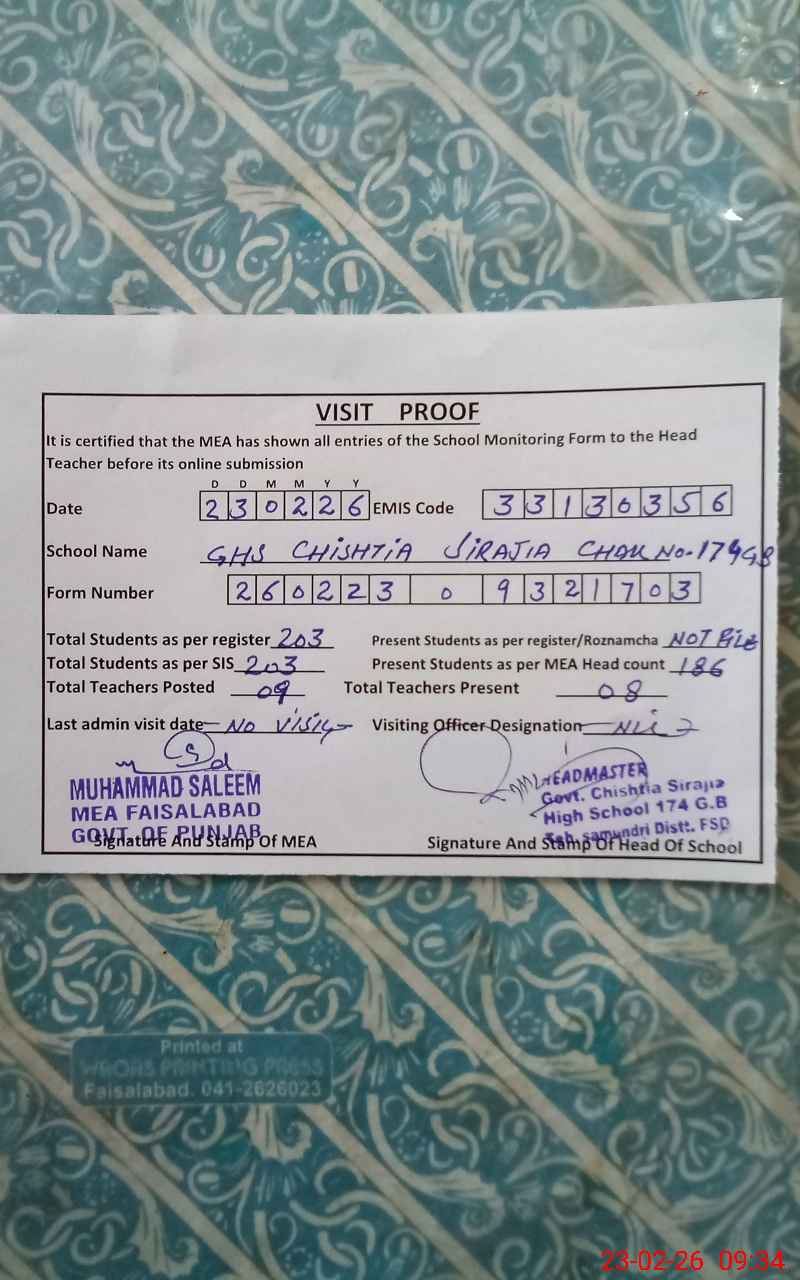 VISIT PROOF
It is certified that the MEA has shown all entries of the School Monitoring Form to the Head
Teacher before its online submission
D D M M Y Y
Date 230226 EMIS Code 33130356
School Name GHS CHISHTIA SIRAJIA CHAK No-174GB
Form Number 260223 0 9321703
Total Students as per register 203 Present Students as per register/Roznamcha NOT File
Total Students as per SIS 203 Present Students as per MEA Head count 186
Total Teachers Posted 09 Total Teachers Present 08
Last admin visit date No Visit Visiting Officer Designation Nil
MUHAMMAD SALEEM
MEA FAISALABAD
GOVT. OF PUNJAB
Signature And Stamp Of MEA
HEADMASTER
Govt. Chishtia Sirajia
High School 174 G.B
Teh. samundri Distt. FSD
Signature And Stamp Of Head Of School
Printed at
WRONS PRINTING PRESS
Faisalabad. 041-2626023
23-02-26 09:34